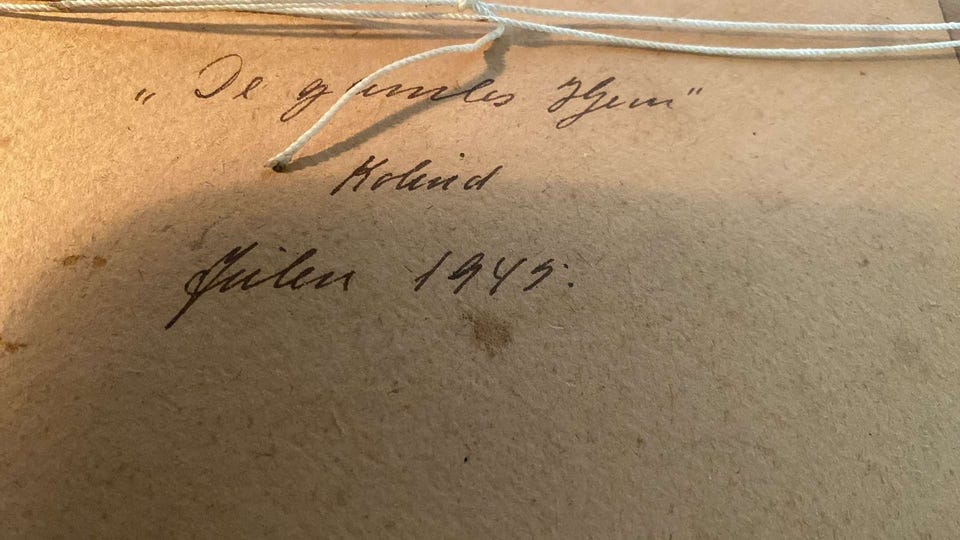 „De gamles Hjem”
Kolind
Julen 1945.